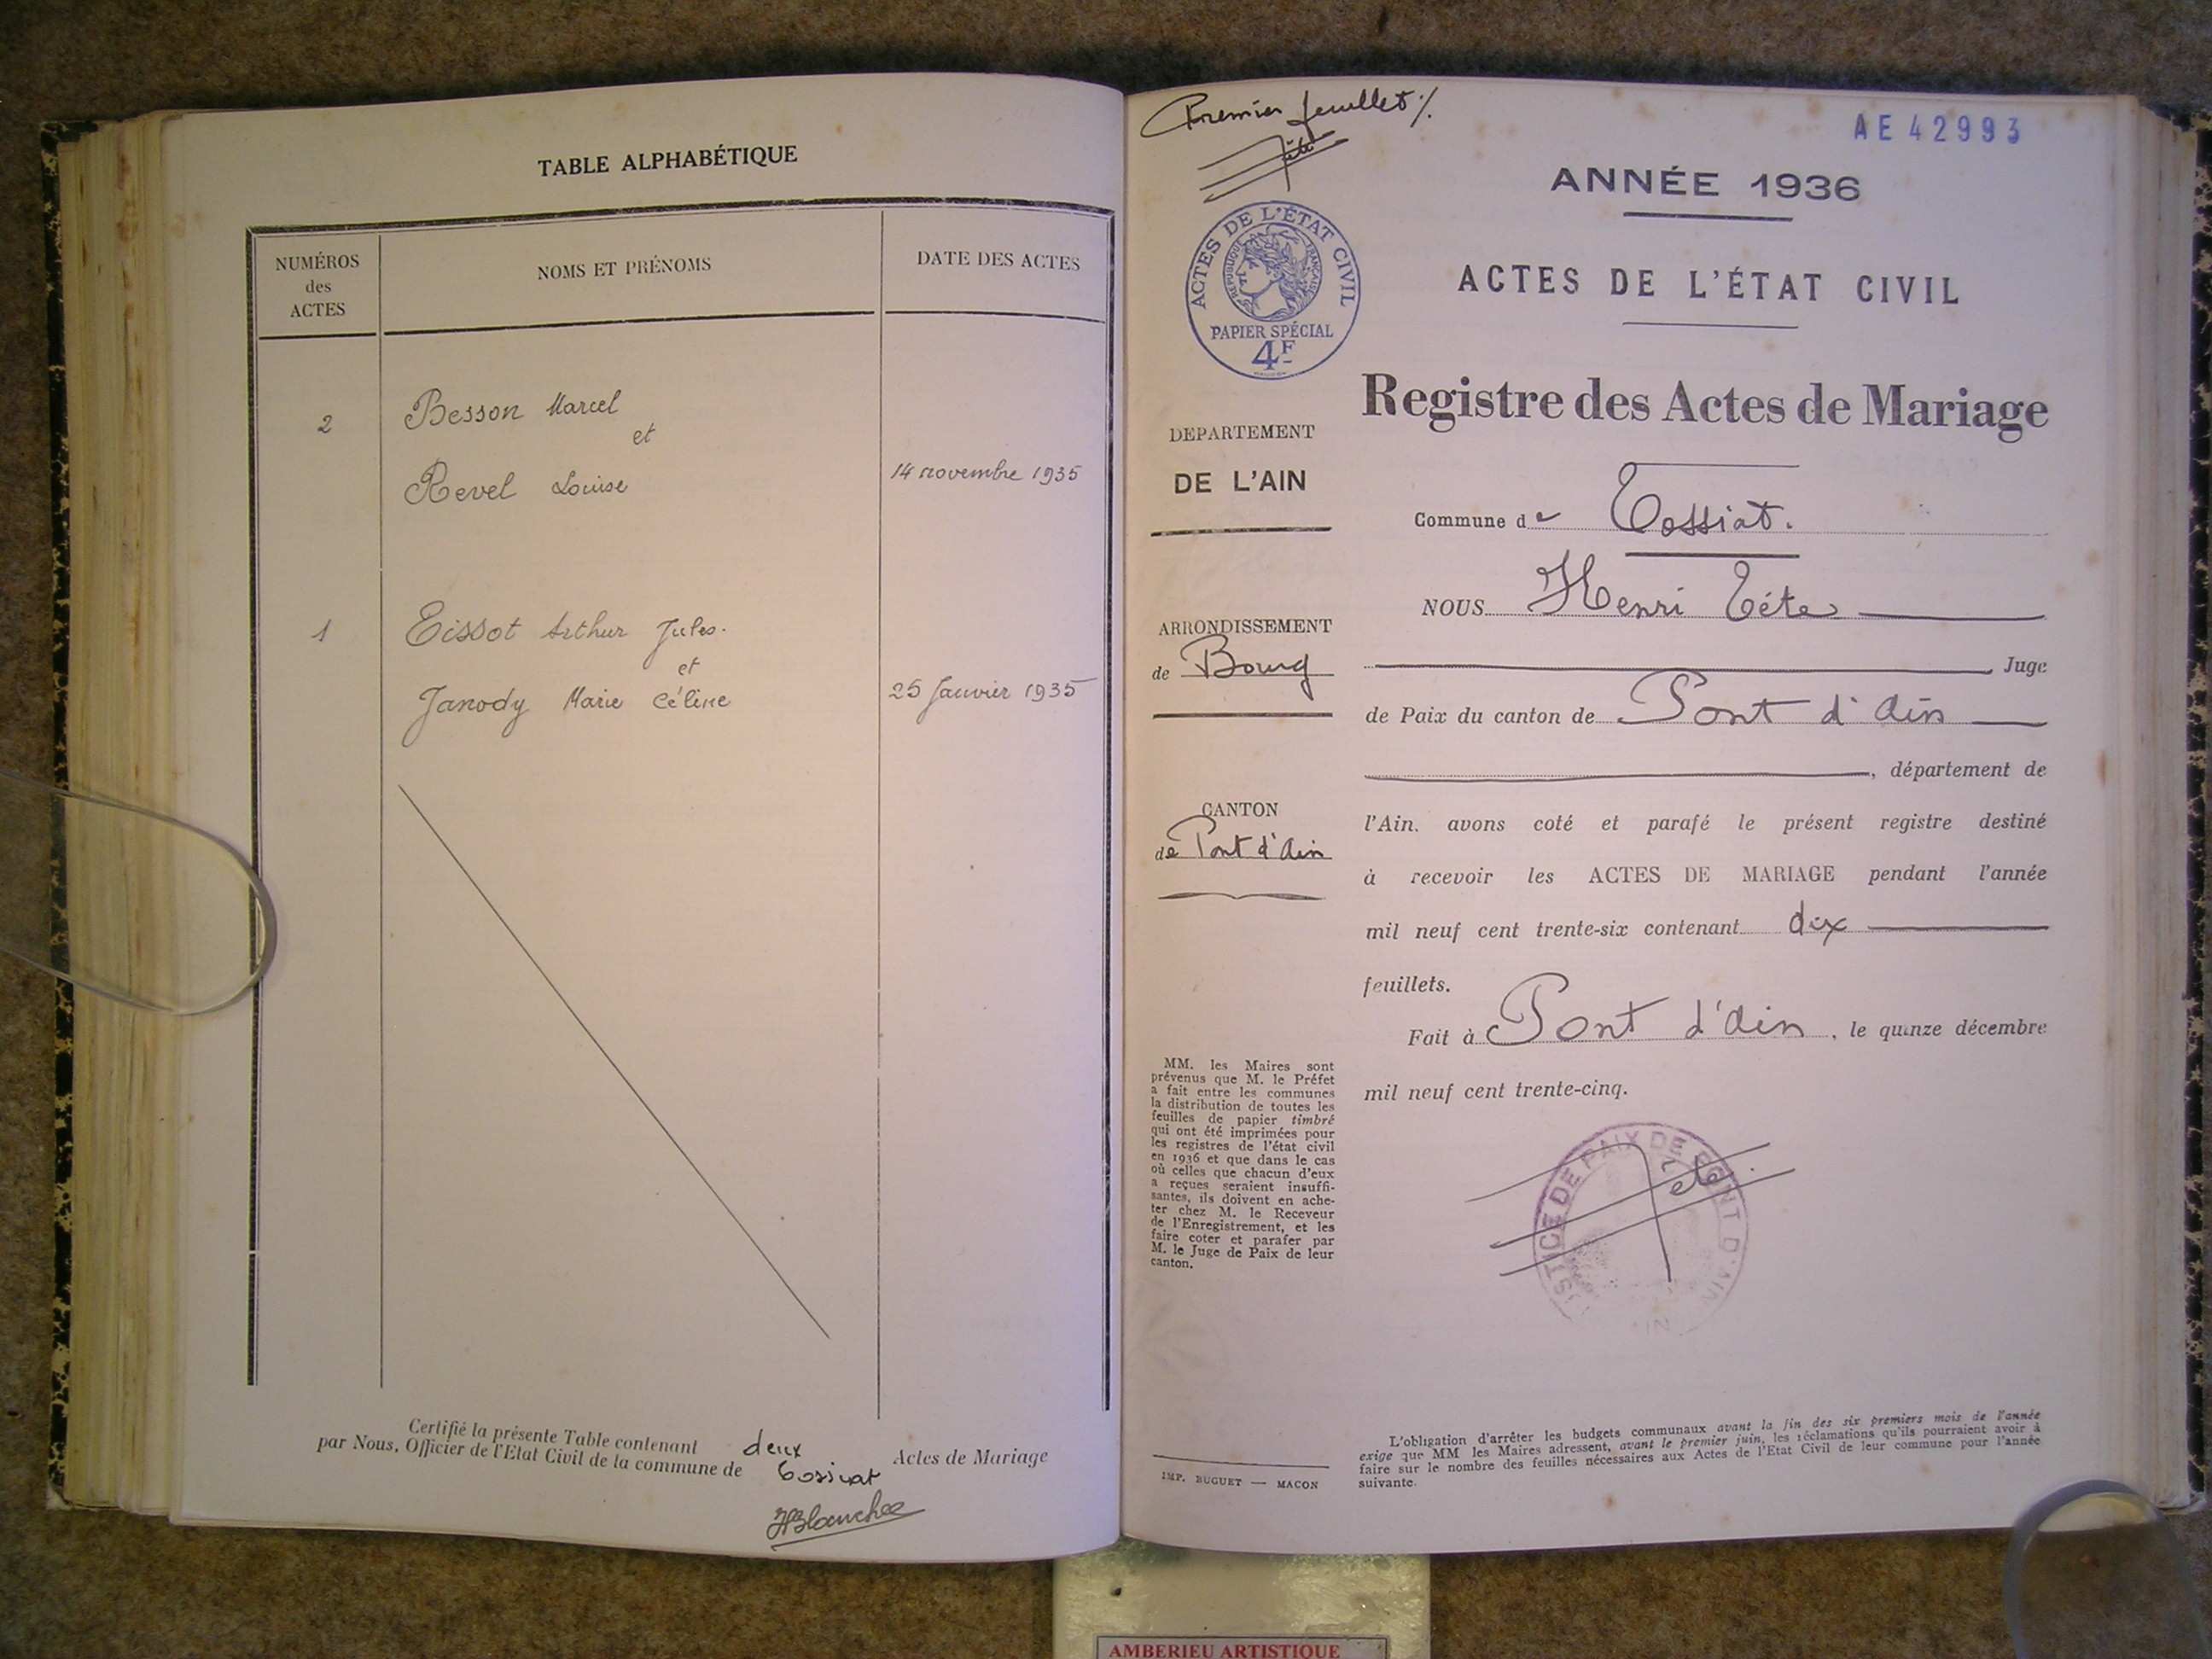 TABLE ALPHABÉTIQUE
NUMÉROS
des
ACTES
NOMS ET PRÉNOMS
DATE DES ACTES
2
Besson Marcel
et
Revel Louise
14 novembre 1935
1
Tissot Arthur Jules.
et
Janody Marie Céline
25 Janvier 1935
Certifié la présente Table contenant deux Actes de Mariage
par Nous, Officier de l'Etat Civil de la commune de Tossiat
Premier feuillet
Tête
AE 42993
ANNÉE 1936
ACTES DE L'ÉTAT CIVIL
RÉPUBLIQUE FRANÇAISE
PAPIER SPÉCIAL
4F
ACTES DE L'ÉTAT CIVIL
Registre des Actes de Mariage
DEPARTEMENT
DE L'AIN
Commune de Tossiat.
NOUS Henri Tête
ARRONDISSEMENT
de Bourg
Juge
de Paix du canton de Pont d'Ain
, département de
CANTON
de Pont d'Ain
l'Ain. avons coté et parafé le présent registre destiné
à recevoir les ACTES DE MARIAGE pendant l'année
mil neuf cent trente-six contenant dix
feuillets.
Fait à Pont d'Ain, le quinze décembre
mil neuf cent trente-cinq.
MM. les Maires sont
prévenus que M. le Préfet
a fait entre les communes
la distribution de toutes les
feuilles de papier timbré
qui ont été imprimées pour
les registres de l'état civil
en 1936 et que dans le cas
où celles que chacun d'eux
a reçues seraient insuffi-
santes, ils doivent en ache-
ter chez M. le Receveur
de l'Enregistrement, et les
faire coter et parafer par
M. le Juge de Paix de leur
canton.
STICE DE PAIX DE PONT D'AIN
Tête
IMP. BUGUET — MACON
L'obligation d'arrêter les budgets communaux avant la fin des six premiers mois de l'année
exige que MM les Maires adressent, avant le premier juin, les réclamations qu'ils pourraient avoir à
faire sur le nombre des feuilles nécessaires aux Actes de l'Etat Civil de leur commune pour l'année
suivante.
AMBERIEU ARTISTIQUE